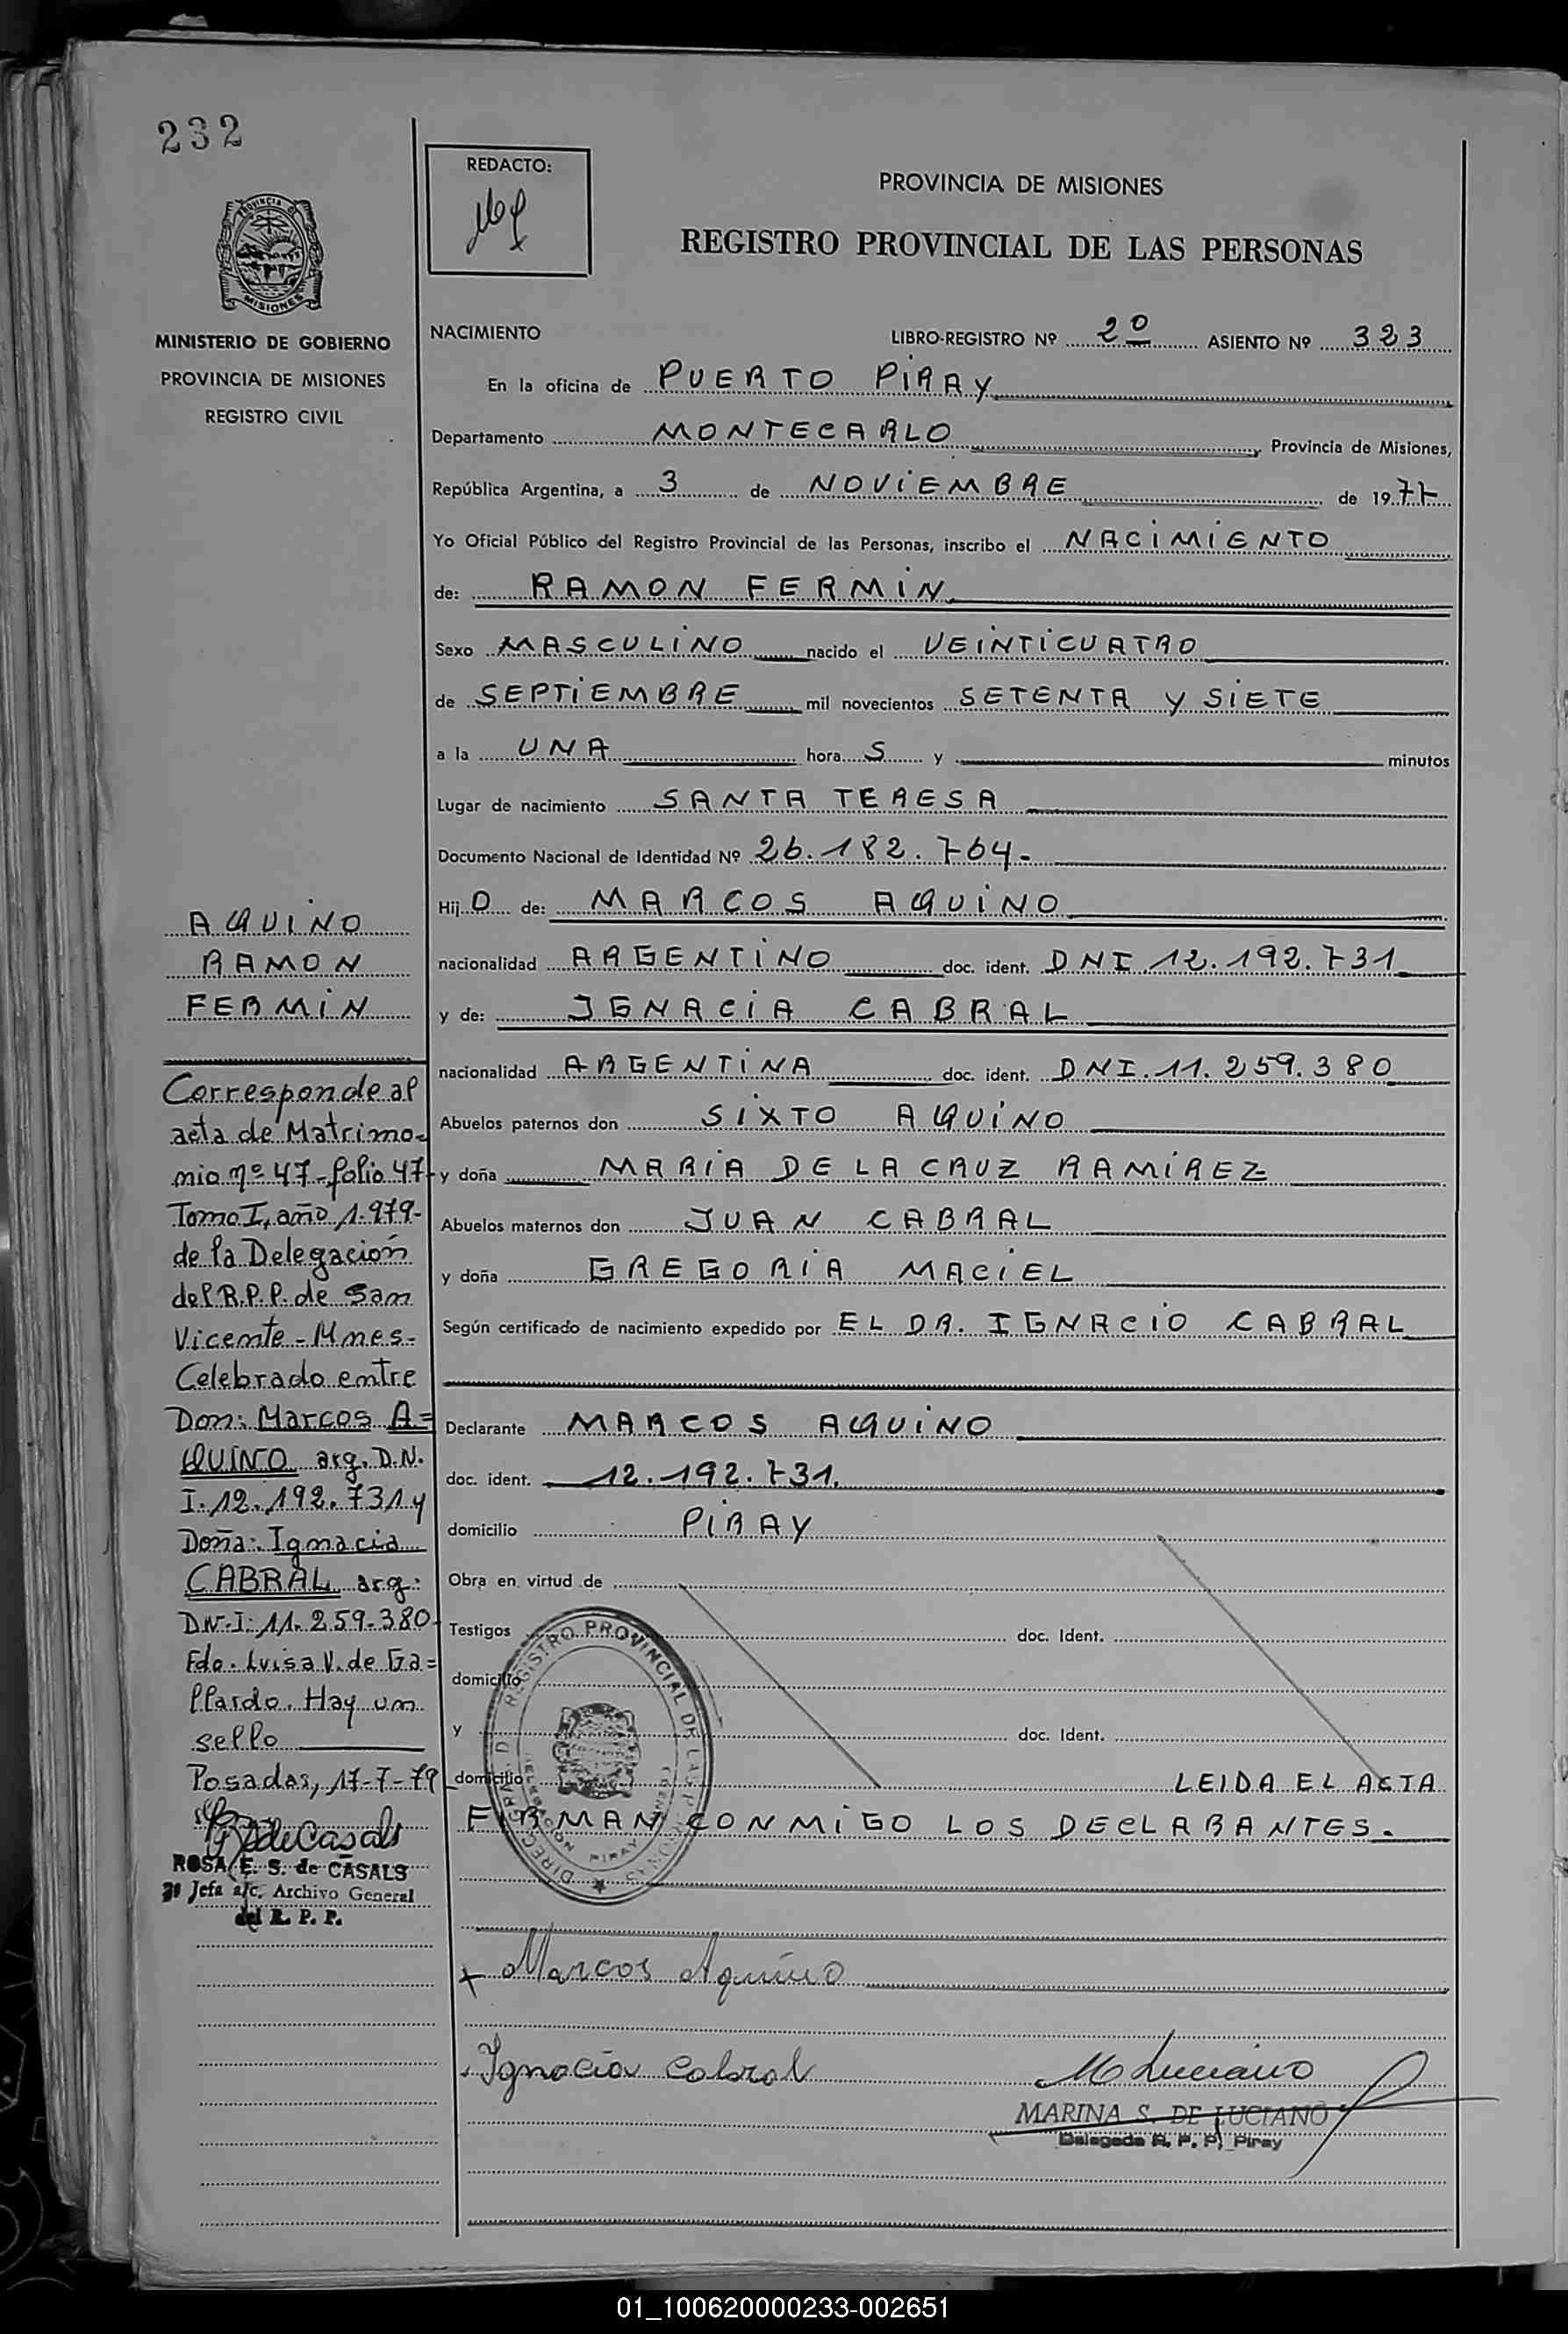 232
REDACTO:
PROVINCIA DE MISIONES
REGISTRO PROVINCIAL DE LAS PERSONAS
PROVINCIA DE
MISIONES
MINISTERIO DE GOBIERNO
PROVINCIA DE MISIONES
REGISTRO CIVIL
NACIMIENTO LIBRO-REGISTRO Nº 2º ASIENTO Nº 323
En la oficina de PUERTO PIRAY
Departamento MONTECARLO, Provincia de Misiones,
República Argentina, a 3 de NOVIEMBRE de 1977
Yo Oficial Público del Registro Provincial de las Personas, inscribo el NACIMIENTO
de: RAMON FERMIN
Sexo MASCULINO nacido el VEINTICUATRO
de SEPTIEMBRE mil novecientos SETENTA Y SIETE
a la UNA hora S y minutos
Lugar de nacimiento SANTA TERESA
Documento Nacional de Identidad Nº 26.182.764.-
Hij O de: MARCOS AQUINO
nacionalidad ARGENTINO doc. ident. DNI 12.192.731
y de: IGNACIA CABRAL
nacionalidad ARGENTINA doc. ident. DNI. 11.259.380
Abuelos paternos don SIXTO AQUINO
y doña MARIA DE LA CRUZ RAMIREZ
Abuelos maternos don JUAN CABRAL
y doña GREGORIA MACIEL
Según certificado de nacimiento expedido por EL DR. IGNACIO CABRAL
Declarante MARCOS AQUINO
doc. ident. 12.192.731.
domicilio PIRAY
Obra en virtud de
Testigos doc. Ident.
domicilio
y doc. Ident.
domicilio LEIDA EL ACTA
FIRMAN CONMIGO LOS DECLARANTES.
AQUINO
RAMON
FERMIN
Corresponde al
acta de Matrimo-
nio nº 47-folio 47-
Tomo I, año 1.979-
de la Delegación
del R.P.P. de San
Vicente-Mnes-
Celebrado entre
Don: Marcos A=
QUINO arg. D.N.
I. 12.192.731 y
Doña: Ignacia
CABRAL arg:
D.N.I: 11.259.380-
Fdo. Luisa V. de Ga=
llardo. Hay un
sello
Posadas, 17-7-79
RdeCasals
ROSA E. S. de CASALS
Jefa a/c. Archivo General
del R. P. P.
REGISTRO PROVINCIAL DE LAS PERSONAS
PIRAY
Marcos Aquino
Ignacia Cabral
M Luciano
MARINA S. DE LUCIANO
Delegada R. P. P. Piray
01_100620000233-002651